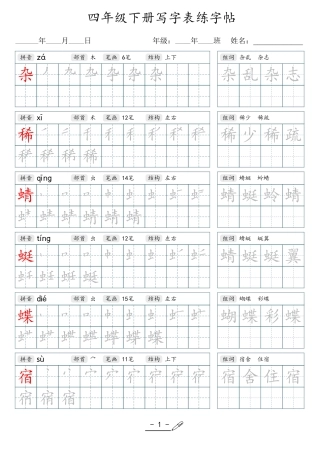 四年级下册写字表练字帖
____年____月____日 年级：____班 姓名：____
拼音 zá 部首 木 笔画 6笔 结构 上下 组词 杂乱 杂志
杂 杂乱杂志
拼音 xī 部首 禾 笔画 12笔 结构 左右 组词 稀少 稀疏
稀 稀少稀疏
拼音 qīng 部首 虫 笔画 14笔 结构 左右 组词 蜻蜓
蜻 蜻蜓蛉蜻
拼音 tíng 部首 虫 笔画 12笔 结构 左右 组词 蜻蜓 蜓翼
蜓 蜻蜓蜓翼
拼音 dié 部首 虫 笔画 15笔 结构 左右 组词 蝴蝶 彩蝶
蝶 蝴蝶彩蝶
拼音 sù 部首 宀 笔画 11笔 结构 上下 组词 宿舍 住宿
宿 宿舍住宿
- 1 -